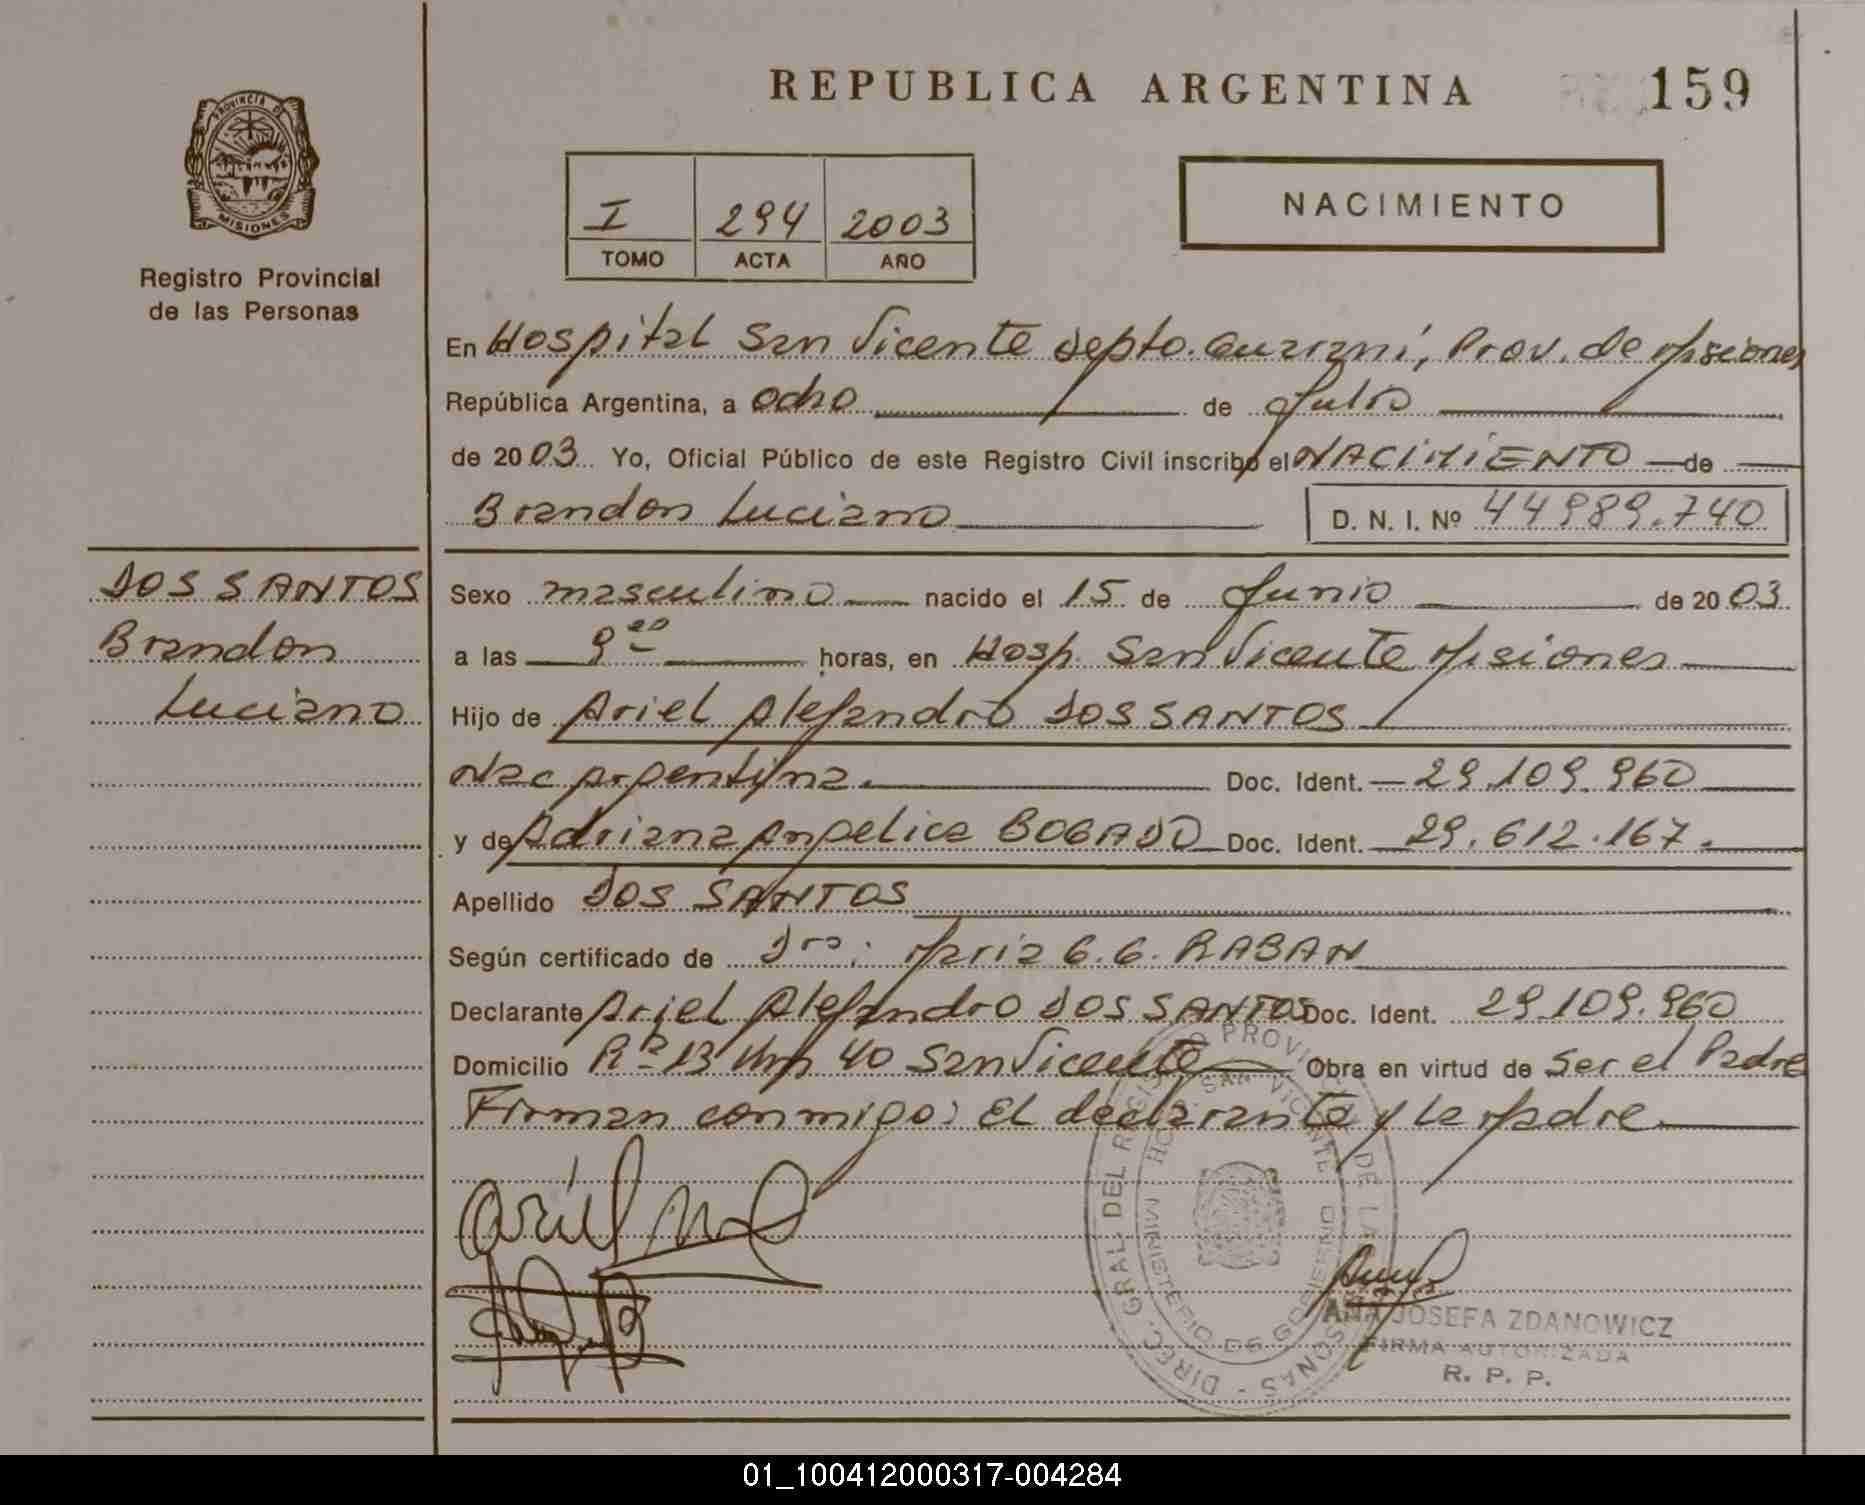 REPUBLICA ARGENTINA
159
PROVINCIA DE MISIONES
Registro Provincial
de las Personas
I 294 2003
TOMO ACTA AÑO
NACIMIENTO
En Hospital San Vicente Depto. Guarani, Prov. de Misiones
República Argentina, a ocho de Julio
de 2003 Yo, Oficial Público de este Registro Civil inscribo el NACIMIENTO de
Brandon Luciano D. N. I. Nº 44989.740
DOS SANTOS
Brandon
Luciano
Sexo masculino nacido el 15 de Junio de 2003
a las 9 horas, en Hosp. San Vicente Misiones
Hijo de Ariel Alejandro DOS SANTOS
Nac Argentina. Doc. Ident. 29.109.960
y de Adriana Angelica BOGADO Doc. Ident. 29.612.167.
Apellido DOS SANTOS
Según certificado de Dra: Maria G.G. RABAN
Declarante Ariel Alejandro DOS SANTOS Doc. Ident. 29.109.960
Domicilio Rª 13 Km 40 San Vicente Obra en virtud de ser el Padre
Firman conmigo: El declarante y la Madre
DIREC. GRAL DEL REGISTRO PROVINCIAL DE LAS PERSONAS
HOSP. SAN VICENTE
MINISTERIO DE GOBIERNO
ANA JOSEFA ZDANOWICZ
FIRMA AUTORIZADA
R. P. P.
01_100412000317-004284